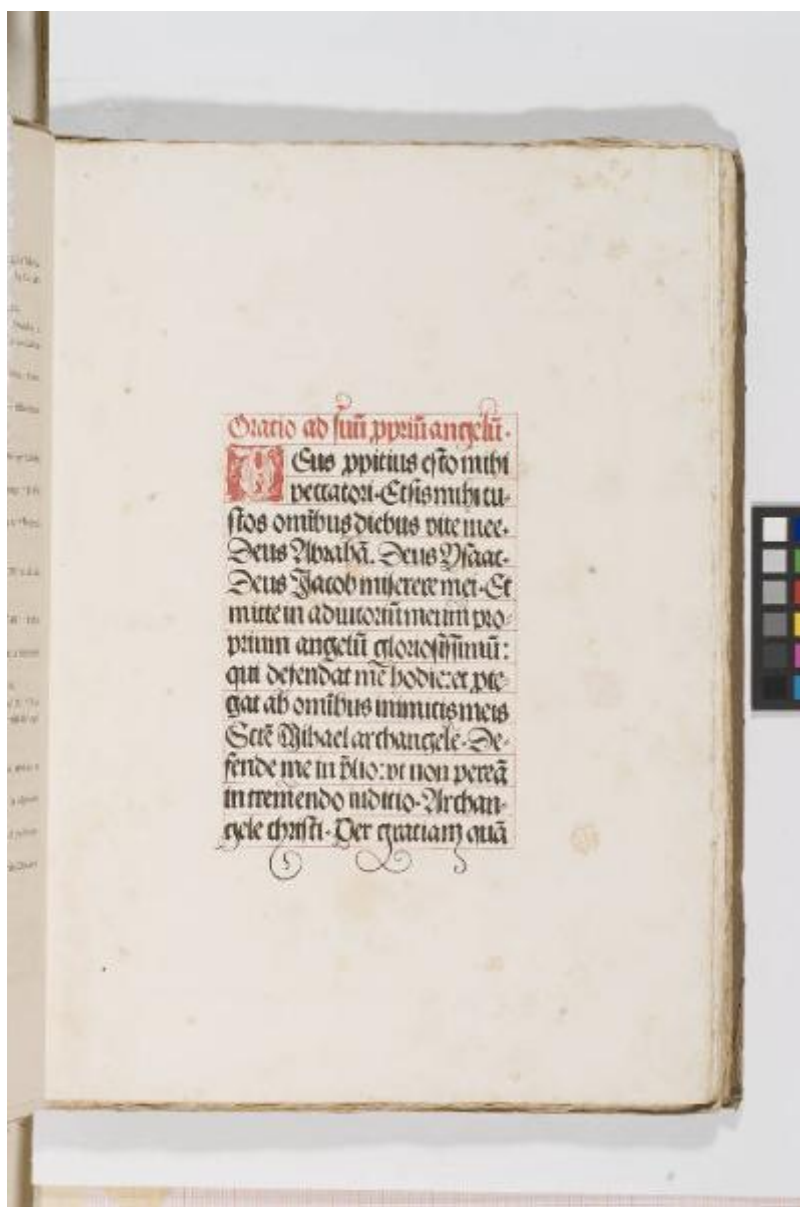 Oratio ad suū ꝓpriū angelū.
DEus ꝓpitius esto mihi
peccatori. Et sis mihi cu-
stos omībus diebus vite mee.
Deus Abrahā. Deus Ysaac.
Deus Jacob miserere mei. Et
mitte in adiutoriū meum pro-
prium angelū gloriosissimū:
qui defendat me hodie: et ꝓte-
gat ab omībus inimicis meis
Sctē Mihael archangele. De-
fende me in p̄lio: vt non pereā
in tremendo iuditio. Archan-
gele christi. Per gratiam quā